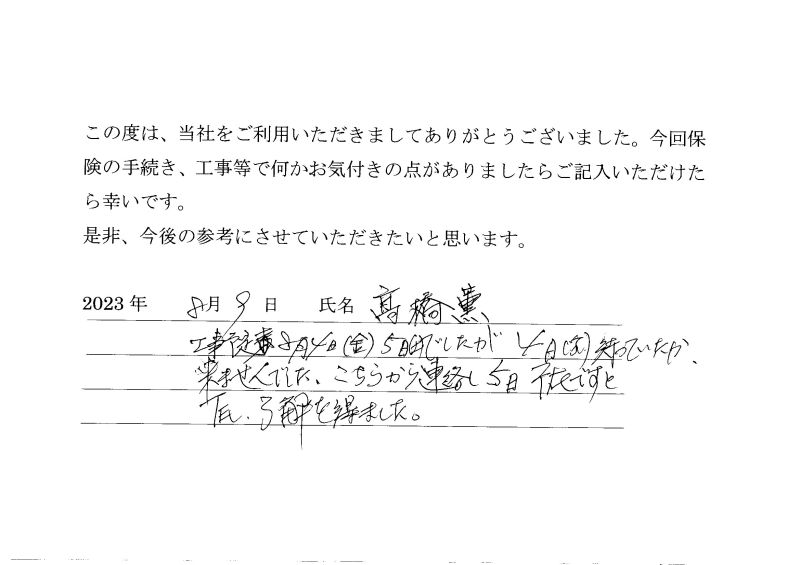 この度は、当社をご利用いただきましてありがとうございました。今回保
険の手続き、工事等で何かお気付きの点がありましたらご記入いただけた
ら幸いです。
是非、今後の参考にさせていただきたいと思います。
2023 年 8月 9 日 氏名 髙橋薫
工事予定 8月4日(金) 5日(土)でしたが 4日(金)待っていたが、
来ませんでした、こちらから連絡し 5日 ですと
TEL. 了解を得ました。